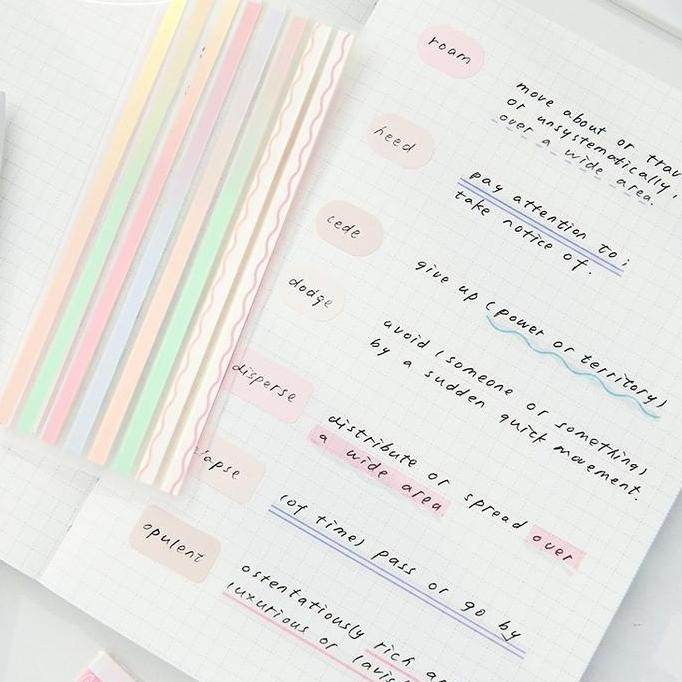 roam
move about or
or unsystematically,
over a wide area.
heed
pay attention to;
take notice of.
cede
give up (power or territory)
dodge
avoid (someone or something)
by a sudden quick movement.
disperse
distribute or spread over
a wide area
lapse
(of time) pass or go by
opulent
ostentatiously rich
luxurious or